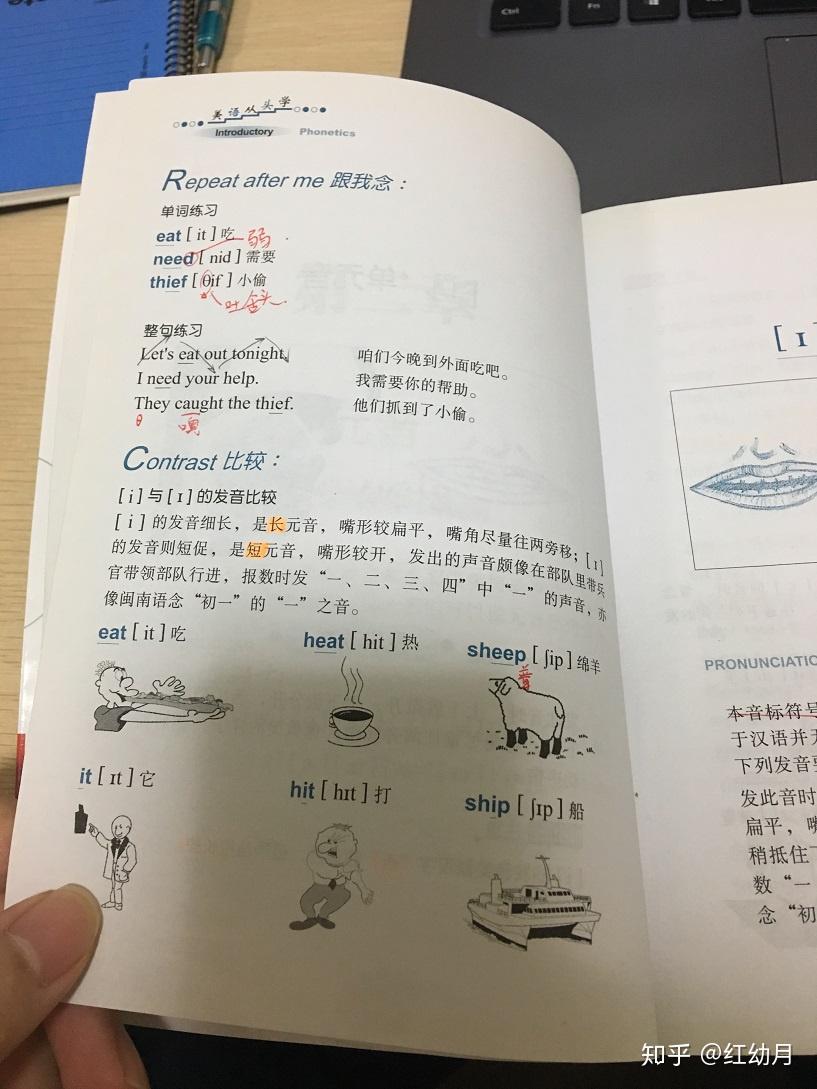 Ctrl
Fn
美语从头学
Introductory Phonetics
Repeat after me 跟我念：
单词练习
eat [ it ] 吃 弱
need [ nid ] 需要
thief [ θif ] 小偷
吐舌头
整句练习
Let's eat out tonight. 咱们今晚到外面吃吧。
I need your help. 我需要你的帮助。
They caught the thief. 他们抓到了小偷。
Contrast 比较：
[ i ] 与 [ ɪ ] 的发音比较
[ i ] 的发音细长，是长元音，嘴形较扁平，嘴角尽量往两旁移；[ ɪ ]
的发音则短促，是短元音，嘴形较开，发出的声音颇像在部队里带兵
官带领部队行进，报数时发“一、二、三、四”中“一”的声音，亦
像闽南语念“初一”的“一”之音。
eat [ it ] 吃 heat [ hit ] 热 sheep [ ʃip ] 绵羊
it [ ɪt ] 它 hit [ hɪt ] 打 ship [ ʃɪp ] 船
[ ɪ
PRONUNCIATIO
本音标符号
于汉语并
下列发音
发此音时
扁平，嘴
稍抵住
数“一
念“初
知乎 @红幼月